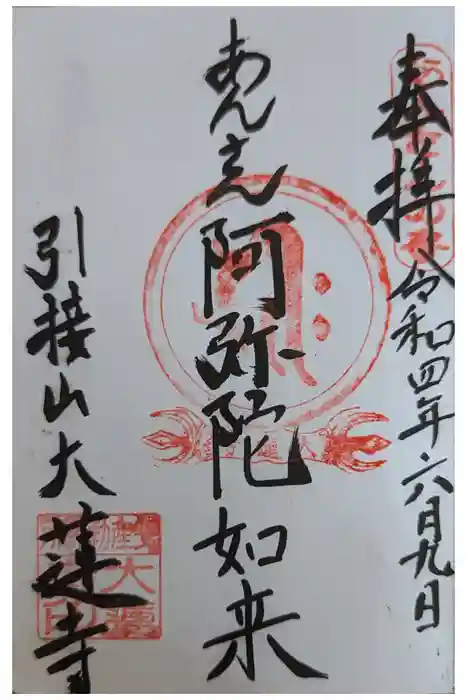 奉拝
令和四年六月九日
あんさん阿弥陀如来
引接山大蓮寺